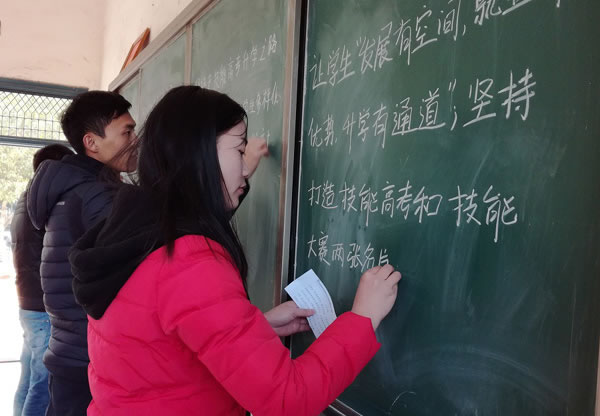 让学生“发展有空间，就业
优势，升学有通道”；坚持
打造技能高考和技能
大赛两张名片
高考升学之路